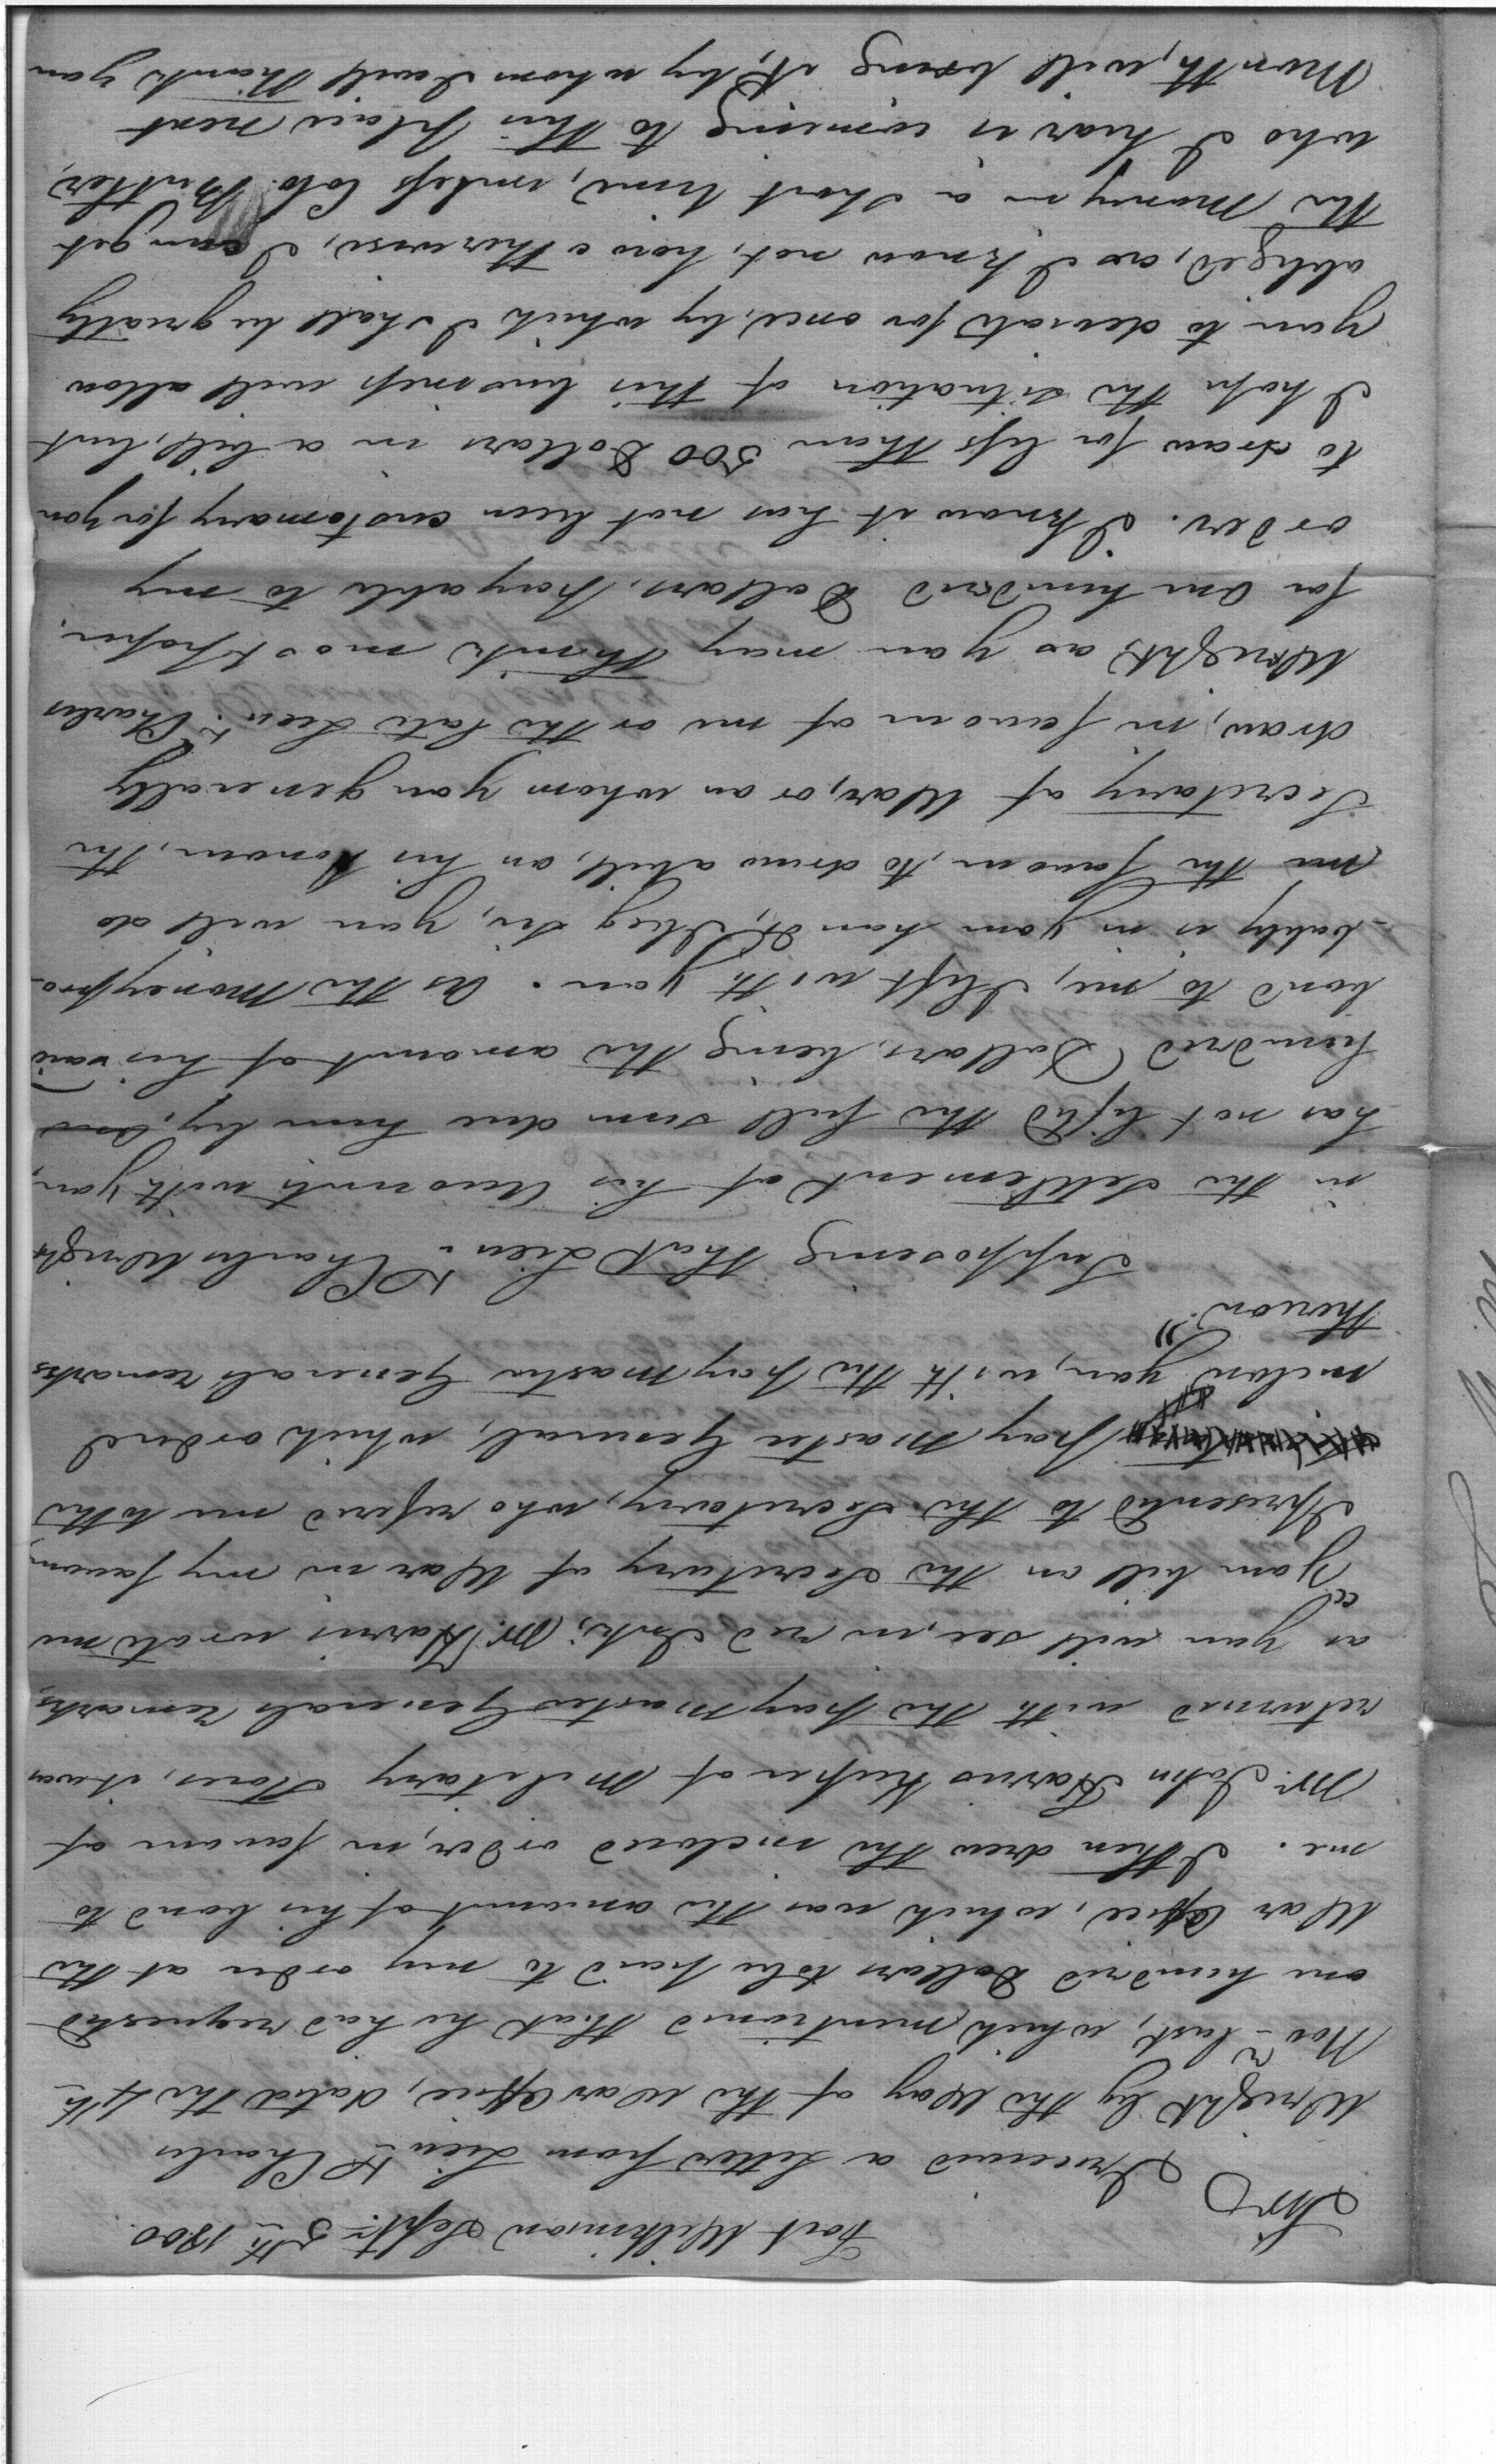 Fort Wilkinson Sept.r 5th 1800.
Sir
I received a letter from Lieu.t Charles
Wright by the Way of the War Office, dated the 4th
Nov.r last, which mentioned that he had requested
one hundred Dollars to be paid to my order at the
War Office, which was the amount of his bond to
me. I then drew the inclosed order, in favour of
Mr. John Harris Keeper of Military Stores, it was
returned with the Pay Master Generals remarks,
as you will see, in red Ink; Mr. Harris wrote me
"Your bill on the Secretary of War in my favour,
I presented to the Secretary, who refered me to the
Pay Master General, which order I
inclose you, with the Pay Master Generals remarks
thereon."
Supposeing that Lieu.t Charles Wright
in the settlement of his Accounts with you,
has not lifted the full sum due him by, one
hundred Dollars, being the amount of his said
bond to me, I left with you. As the Money pro-
-bably is in your hands, I beg Sir, you will do
me the favour, to draw a bill, on his honour, the
Secretary of War, or on whom you generally
draw, in favour of me or the late Lieu.t Charles
Wright, as you may think most proper,
for One hundred Dollars, payable to my
order. I know it has not been customary for you
to draw for less than 500 Dollars in a bill, but
I hope the situation of this business will allow
you to deviate for once, by which I shall be greatly
obliged, as I know not, how otherwise, I can get
the Money in a short time, unless Colo. Butler,
who I hear is comeing to this place next
Month, will bring it, by whom I will thank you